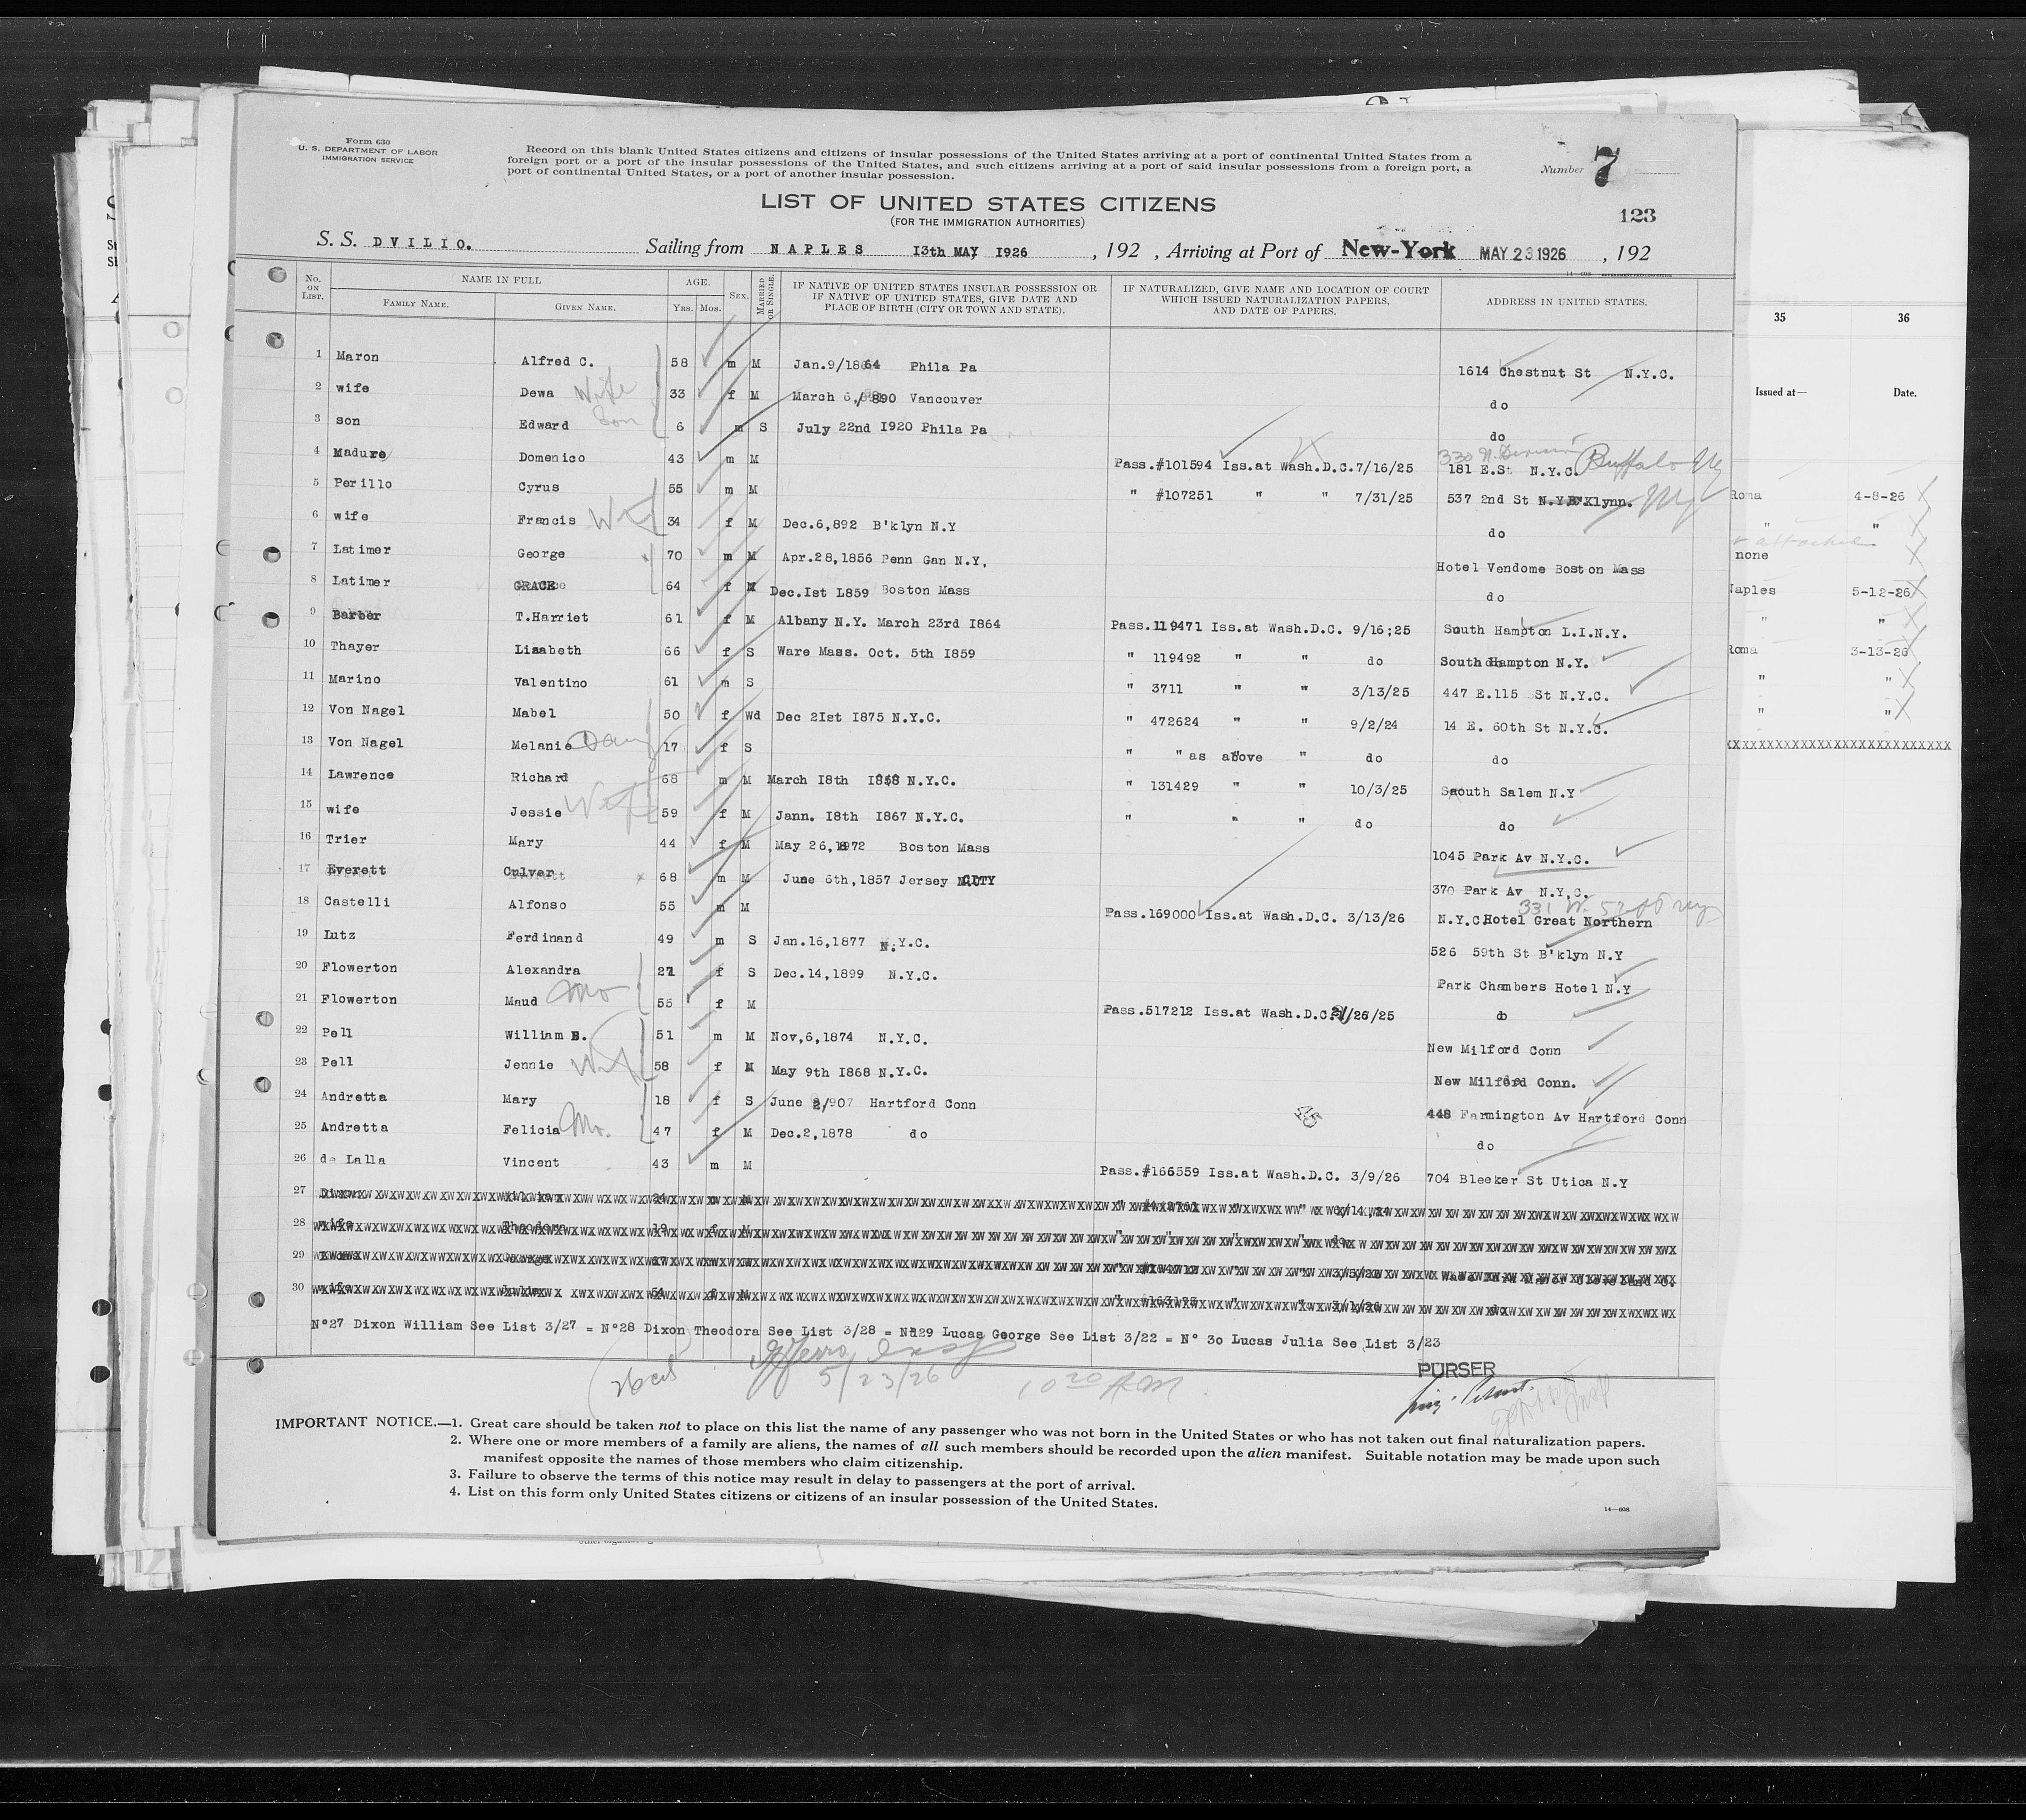 Form 630
U. S. DEPARTMENT OF LABOR
IMMIGRATION SERVICE
Record on this blank United States citizens and citizens of insular possessions of the United States arriving at a port of continental United States from a
foreign port or a port of the insular possessions of the United States, and such citizens arriving at a port of said insular possessions from a foreign port, a
port of continental United States, or a port of another insular possession.
Number 7
LIST OF UNITED STATES CITIZENS
(FOR THE IMMIGRATION AUTHORITIES)
123
S. S. DVILIO. Sailing from NAPLES I3th MAY I926 , 192 , Arriving at Port of New-York MAY 23 1926 , 192
No. ON LIST. NAME IN FULL FAMILY NAME. GIVEN NAME. AGE. YRS. MOS. SEX. MARRIED OR SINGLE. IF NATIVE OF UNITED STATES INSULAR POSSESSION OR IF NATIVE OF UNITED STATES, GIVE DATE AND PLACE OF BIRTH (CITY OR TOWN AND STATE). IF NATURALIZED, GIVE NAME AND LOCATION OF COURT WHICH ISSUED NATURALIZATION PAPERS, AND DATE OF PAPERS. ADDRESS IN UNITED STATES.
35 36
Issued at— Date.
1 Maron Alfred C. 58 m M Jan.9/1864 Phila Pa 1614 Chestnut St N.Y.C.
2 wife Dewa Wife 33 f M March 6,/890 Vancouver do
3 son Edward Son 6 m S July 22nd I920 Phila Pa do
4 Madure Domenico 43 m M Pass.#101594 Iss.at Wash.D.C.7/16/25 181 E.St N.Y.C. 330 N. Division Buffalo NY
5 Perillo Cyrus 55 m M " #107251 " " 7/31/25 537 2nd St B'Klynn. NY
Roma 4-8-26
6 wife Francis Wife 34 f M Dec.6,892 B'klyn N.Y do
" "
7 Latimer George 70 m M Apr.28,1856 Penn Gan N.Y, Hotel Vendome Boston Mass
attached
none
8 Latimer GRACE 64 f M Dec.Ist L859 Boston Mass do
Naples 5-12-26
9 Barber T.Harriet 61 f M Albany N.Y. March 23rd I864 Pass.119471 Iss.at Wash.D.C. 9/16;25 South Hampton L.I.N.Y.
" "
10 Thayer Lisabeth 66 f S Ware Mass. Oct. 5th I859 " 119492 " " do South Hampton N.Y.
Roma 3-13-26
11 Marino Valentino 61 m S " 3711 " " 3/13/25 447 E.115 St N.Y.C.
" "
12 Von Nagel Mabel 50 f Wd Dec 2Ist I875 N.Y.C. " 472624 " " 9/2/24 14 E. 60th St N.Y.C.
" "
13 Von Nagel Melanie Daug 17 f S " " as above " do do
14 Lawrence Richard 68 m M March I8th I858 N.Y.C. " 131429 " " 10/3/25 South Salem N.Y
15 wife Jessie Wife 59 f M Jann. I8th I867 N.Y.C. " " " do do
16 Trier Mary 44 f M May 26,1872 Boston Mass 1045 Park Av N.Y.C.
17 Everett Culver 68 m M June 6th,1857 Jersey CITY 370 Park Av N.Y,C.
18 Castelli Alfonso 55 m M Pass.169000 Iss.at Wash.D.C. 3/13/26 N.Y.C. Hotel Great Northern
19 Lutz Ferdinand 49 m S Jan.16,1877 N.Y.C. 526 59th St B'klyn N.Y
20 Flowerton Alexandra 27 f S Dec.14,1899 N.Y.C. Park Chambers Hotel N.Y
21 Flowerton Maud Mo 55 f M Pass.517212 Iss.at Wash.D.C. /26/25 do
22 Pell William B. 51 m M Nov,6,1874 N.Y.C. New Milford Conn
23 Pell Jennie Wife 58 f M May 9th I868 N.Y.C. New Milford Conn.
24 Andretta Mary 18 f S June 2/907 Hartford Conn 448 Farmington Av Hartford Conn
25 Andretta Felicia Mo. 47 f M Dec.2,1878 do do
26 de Lalla Vincent 43 m M Pass.#166559 Iss.at Wash.D.C. 3/9/26 704 Bleeker St Utica N.Y
27
28
29
30
N°27 Dixon William See List 3/27 = N°28 Dixon Theodora See List 3/28 = N°29 Lucas George See List 3/22 = N° 30 Lucas Julia See List 3/23
5/23/26
PURSER
IMPORTANT NOTICE.—1. Great care should be taken not to place on this list the name of any passenger who was not born in the United States or who has not taken out final naturalization papers.
2. Where one or more members of a family are aliens, the names of all such members should be recorded upon the alien manifest. Suitable notation may be made upon such
manifest opposite the names of those members who claim citizenship.
3. Failure to observe the terms of this notice may result in delay to passengers at the port of arrival.
4. List on this form only United States citizens or citizens of an insular possession of the United States.
14—608